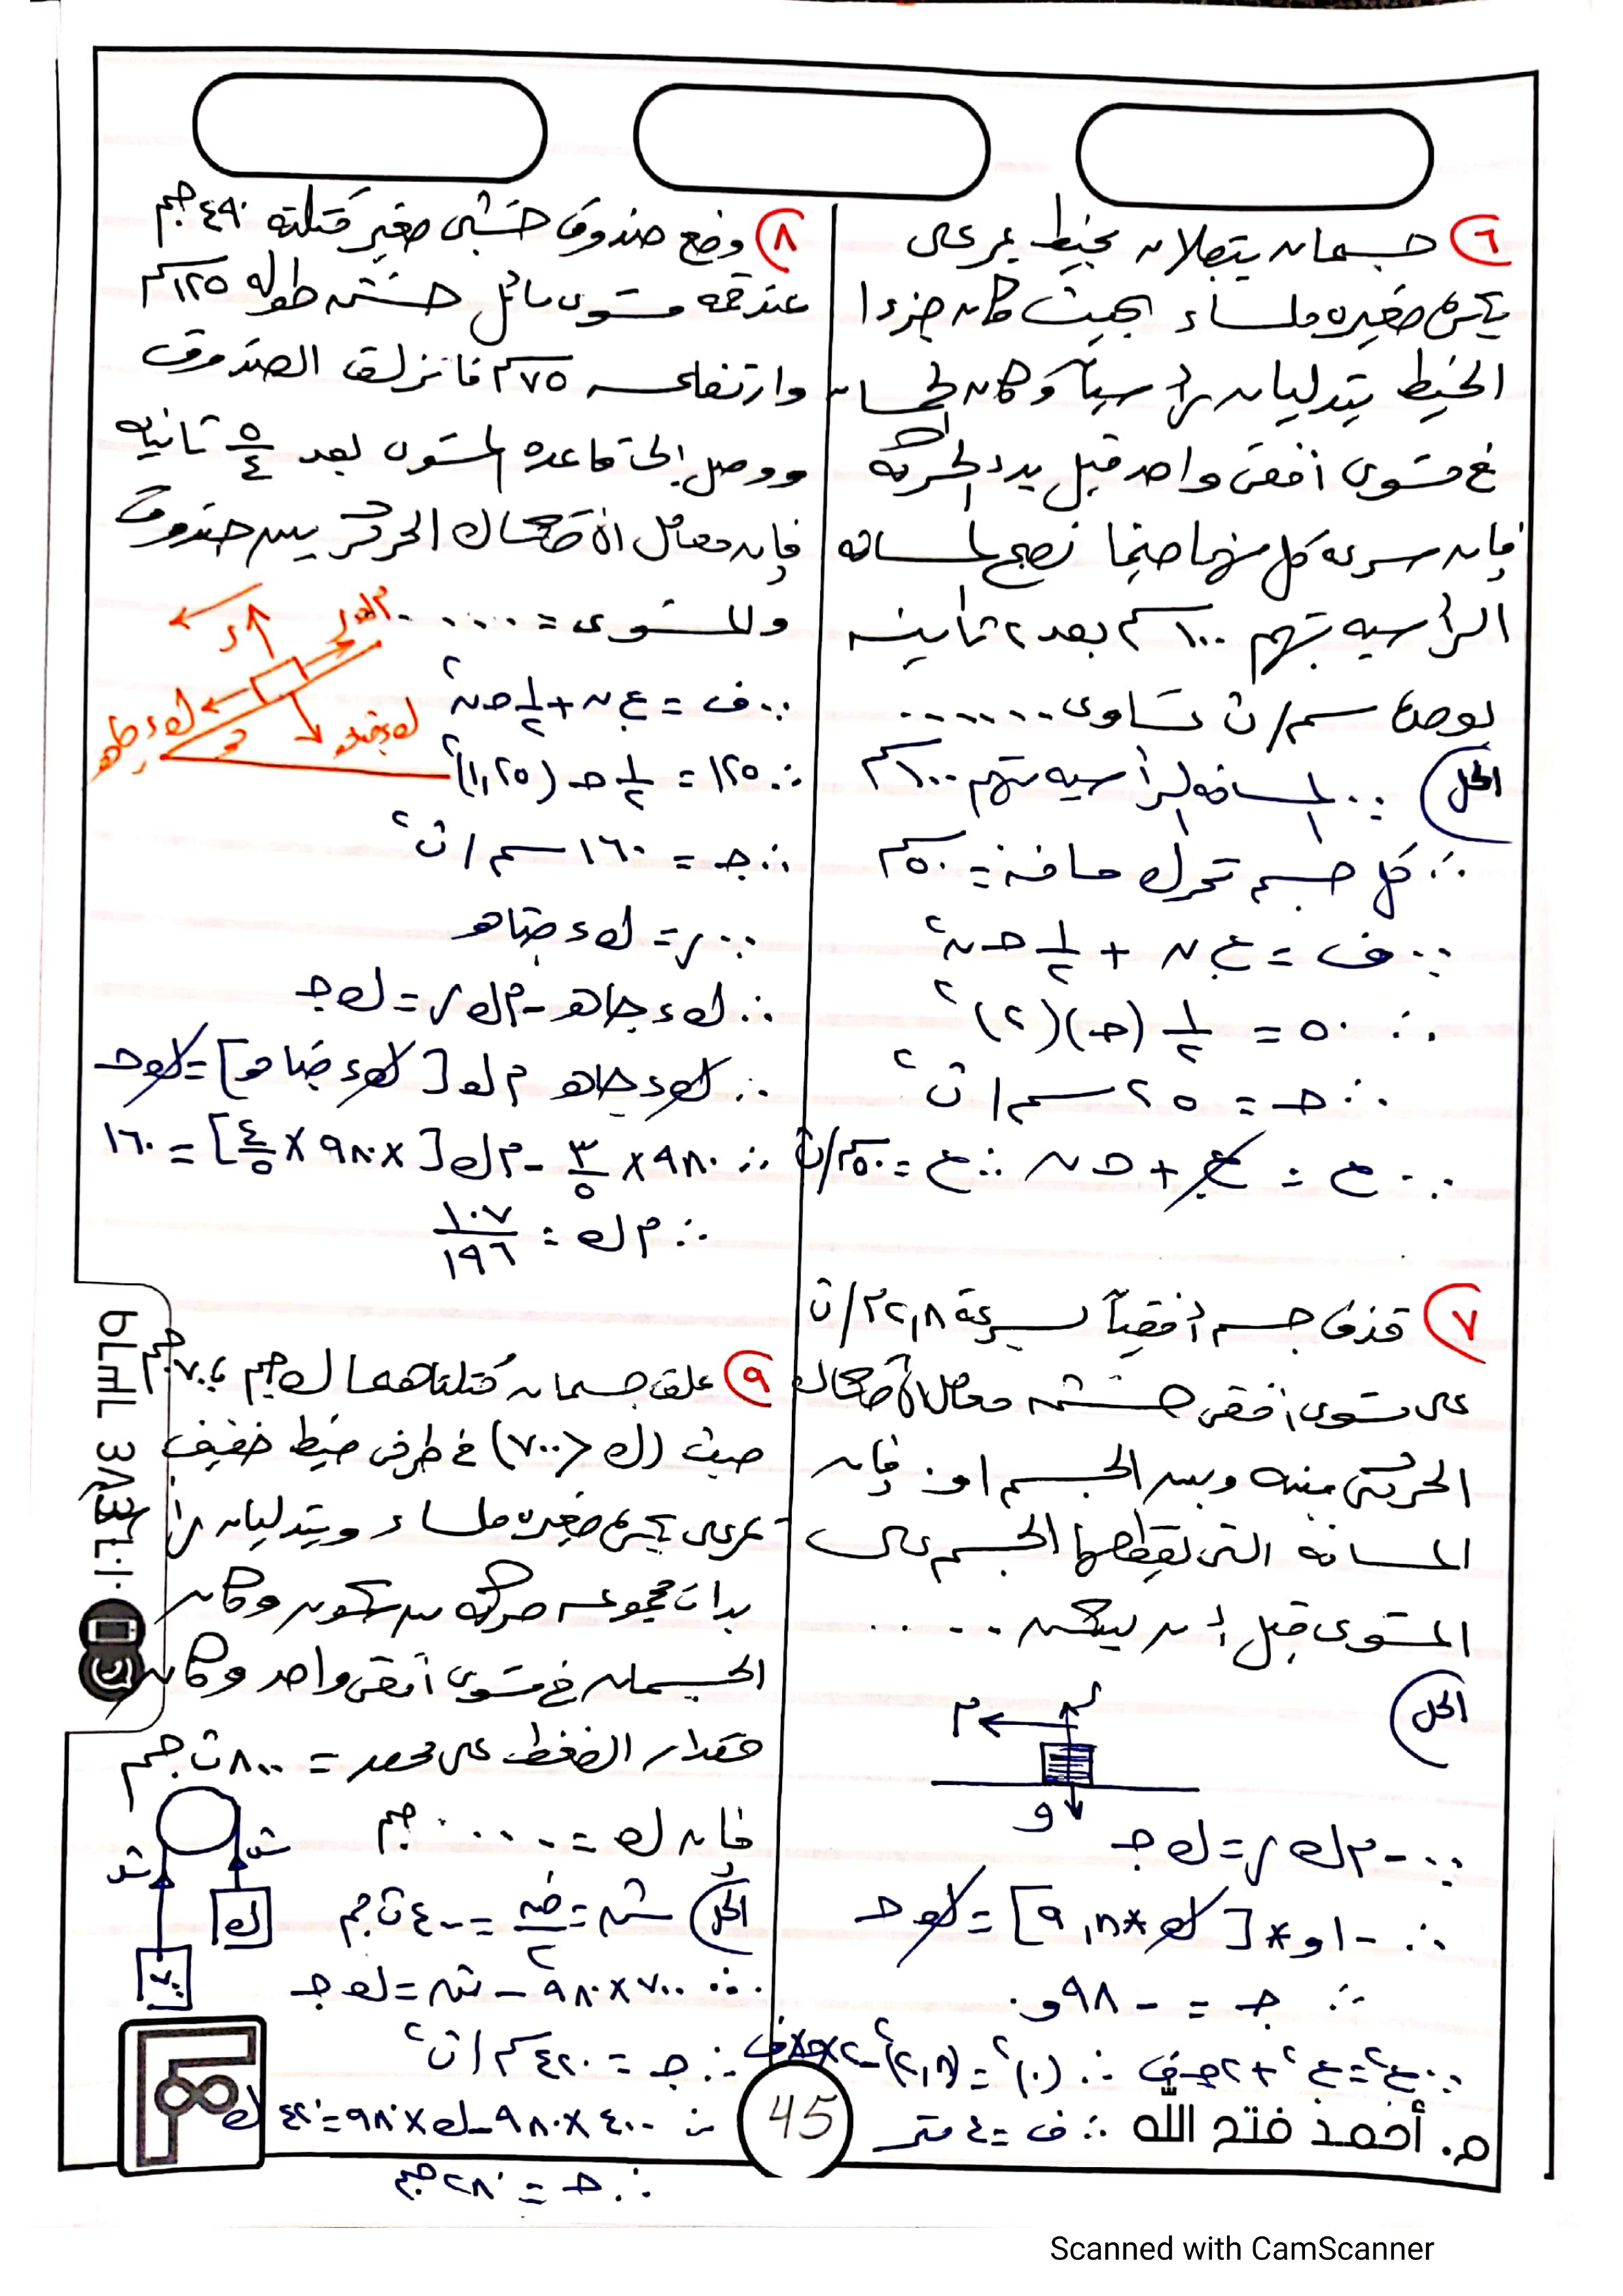 ٦ جسمان يتصلان بخيط يمر على
بكرة صغيرة ملساء بحيث كان جزءا
الخيط يتدليان رأسياً وكان الجسمان
فى مستوى أفقى واحد قبل بدء الحركة
فإن سرعة كل منهما حينما تصبح المسافة
الرأسية بينهم ١٠٠سم بعد ٢ ثانية
بوحدة سم/ث تساوى ......
الحل
∵ المسافة الرأسية بينهم ١٠٠سم
∴ كل جسم تحرك مسافة = ٥٠سم
∵ ف = ع. ن + ١/٢ حـ ن٢
∴ ٥٠ = ١/٢ (حـ)(٢)٢
∴ حـ = ٢٥ سم/ث٢
∵ ع = ع. + حـ ن ∴ ع = ٥٠سم/ث
٧ قذف جسم أفقياً بسرعة ٢,٨م/ث
على مستوى أفقى خشن معامل الأحتكاك
الحركى بينه وبين الجسم ٠,١ فإن
المسافة التى يقطعها الجسم على
المستوى قبل أن يسكن .....
الحل
ر
م
و
∵ -م ك ر = ك جـ
∴ -٠,١ * [ك * ٩,٨] = ك حـ
∴ جـ = -٠,٩٨
∵ ع٢ = ع.٢ + ٢ حـ ف ∴ (٠)٢ = (٢,٨)٢ - ٢×٠,٩٨×ف
∴ ف = ٤ متر
م. أحمد فتح الله
٨ وضع صندوق خشبى صغير كتلته ٤٩٠جم
عند قمة مستوى مائل خشن طوله ١٢٥سم
وارتفاعه ٧٥سم فانزلق الصندوق
ووصل إلى قاعدة المستوى بعد ٥/٤ ثانية
فإن معامل الاحتكاك الحركى بين صندوق
والمستوى = .....
م ك ر
ر
ك ء جا هـ
ك ء جتا هـ
هـ
∵ ف = ع. ن + ١/٢ حـ ن٢
∴ ١٢٥ = ١/٢ حـ (١,٢٥)٢
∴ جـ = ١٦٠ سم/ث٢
∵ ر = ك ء جتا هـ
∴ ك ء جا هـ - م ك ر = ك جـ
∴ ك ء جا هـ م ك [ك ء جتا هـ] = ك حـ
∴ ٩٨٠ × ٣/٥ - م ك [٩٨٠ × ٤/٥] = ١٦٠
∴ م ك = ١٠٧/١٩٦
٩ علق جسمان كتلتاهما ك جم ، ٧٠٠جم
حيث (ك < ٧٠٠) فى طرفى خيط خفيف
تمر على بكرة صغيرة ملساء ويتدليان رأ
بدأت مجموعه حركة من سكون وكان
الجسمان فى مستوى أفقى واحد وكان
مقدار الضغط على محور = ٨٠٠ ث جم
فإن ك = ..... جم
ش
ش
ك
٧٠٠
الحل ش = ض/٢ = ٤٠٠ ث جم
∴ ٧٠٠ × ٩٨٠ - ش = ك جـ
∴ جـ = ٤٢٠ سم/ث٢
∴ ٤٠٠ × ٩٨٠ - ك × ٩٨٠ = ٤٢٠ ك
∴ حـ = ٢٨٠جم
45
Scanned with CamScanner